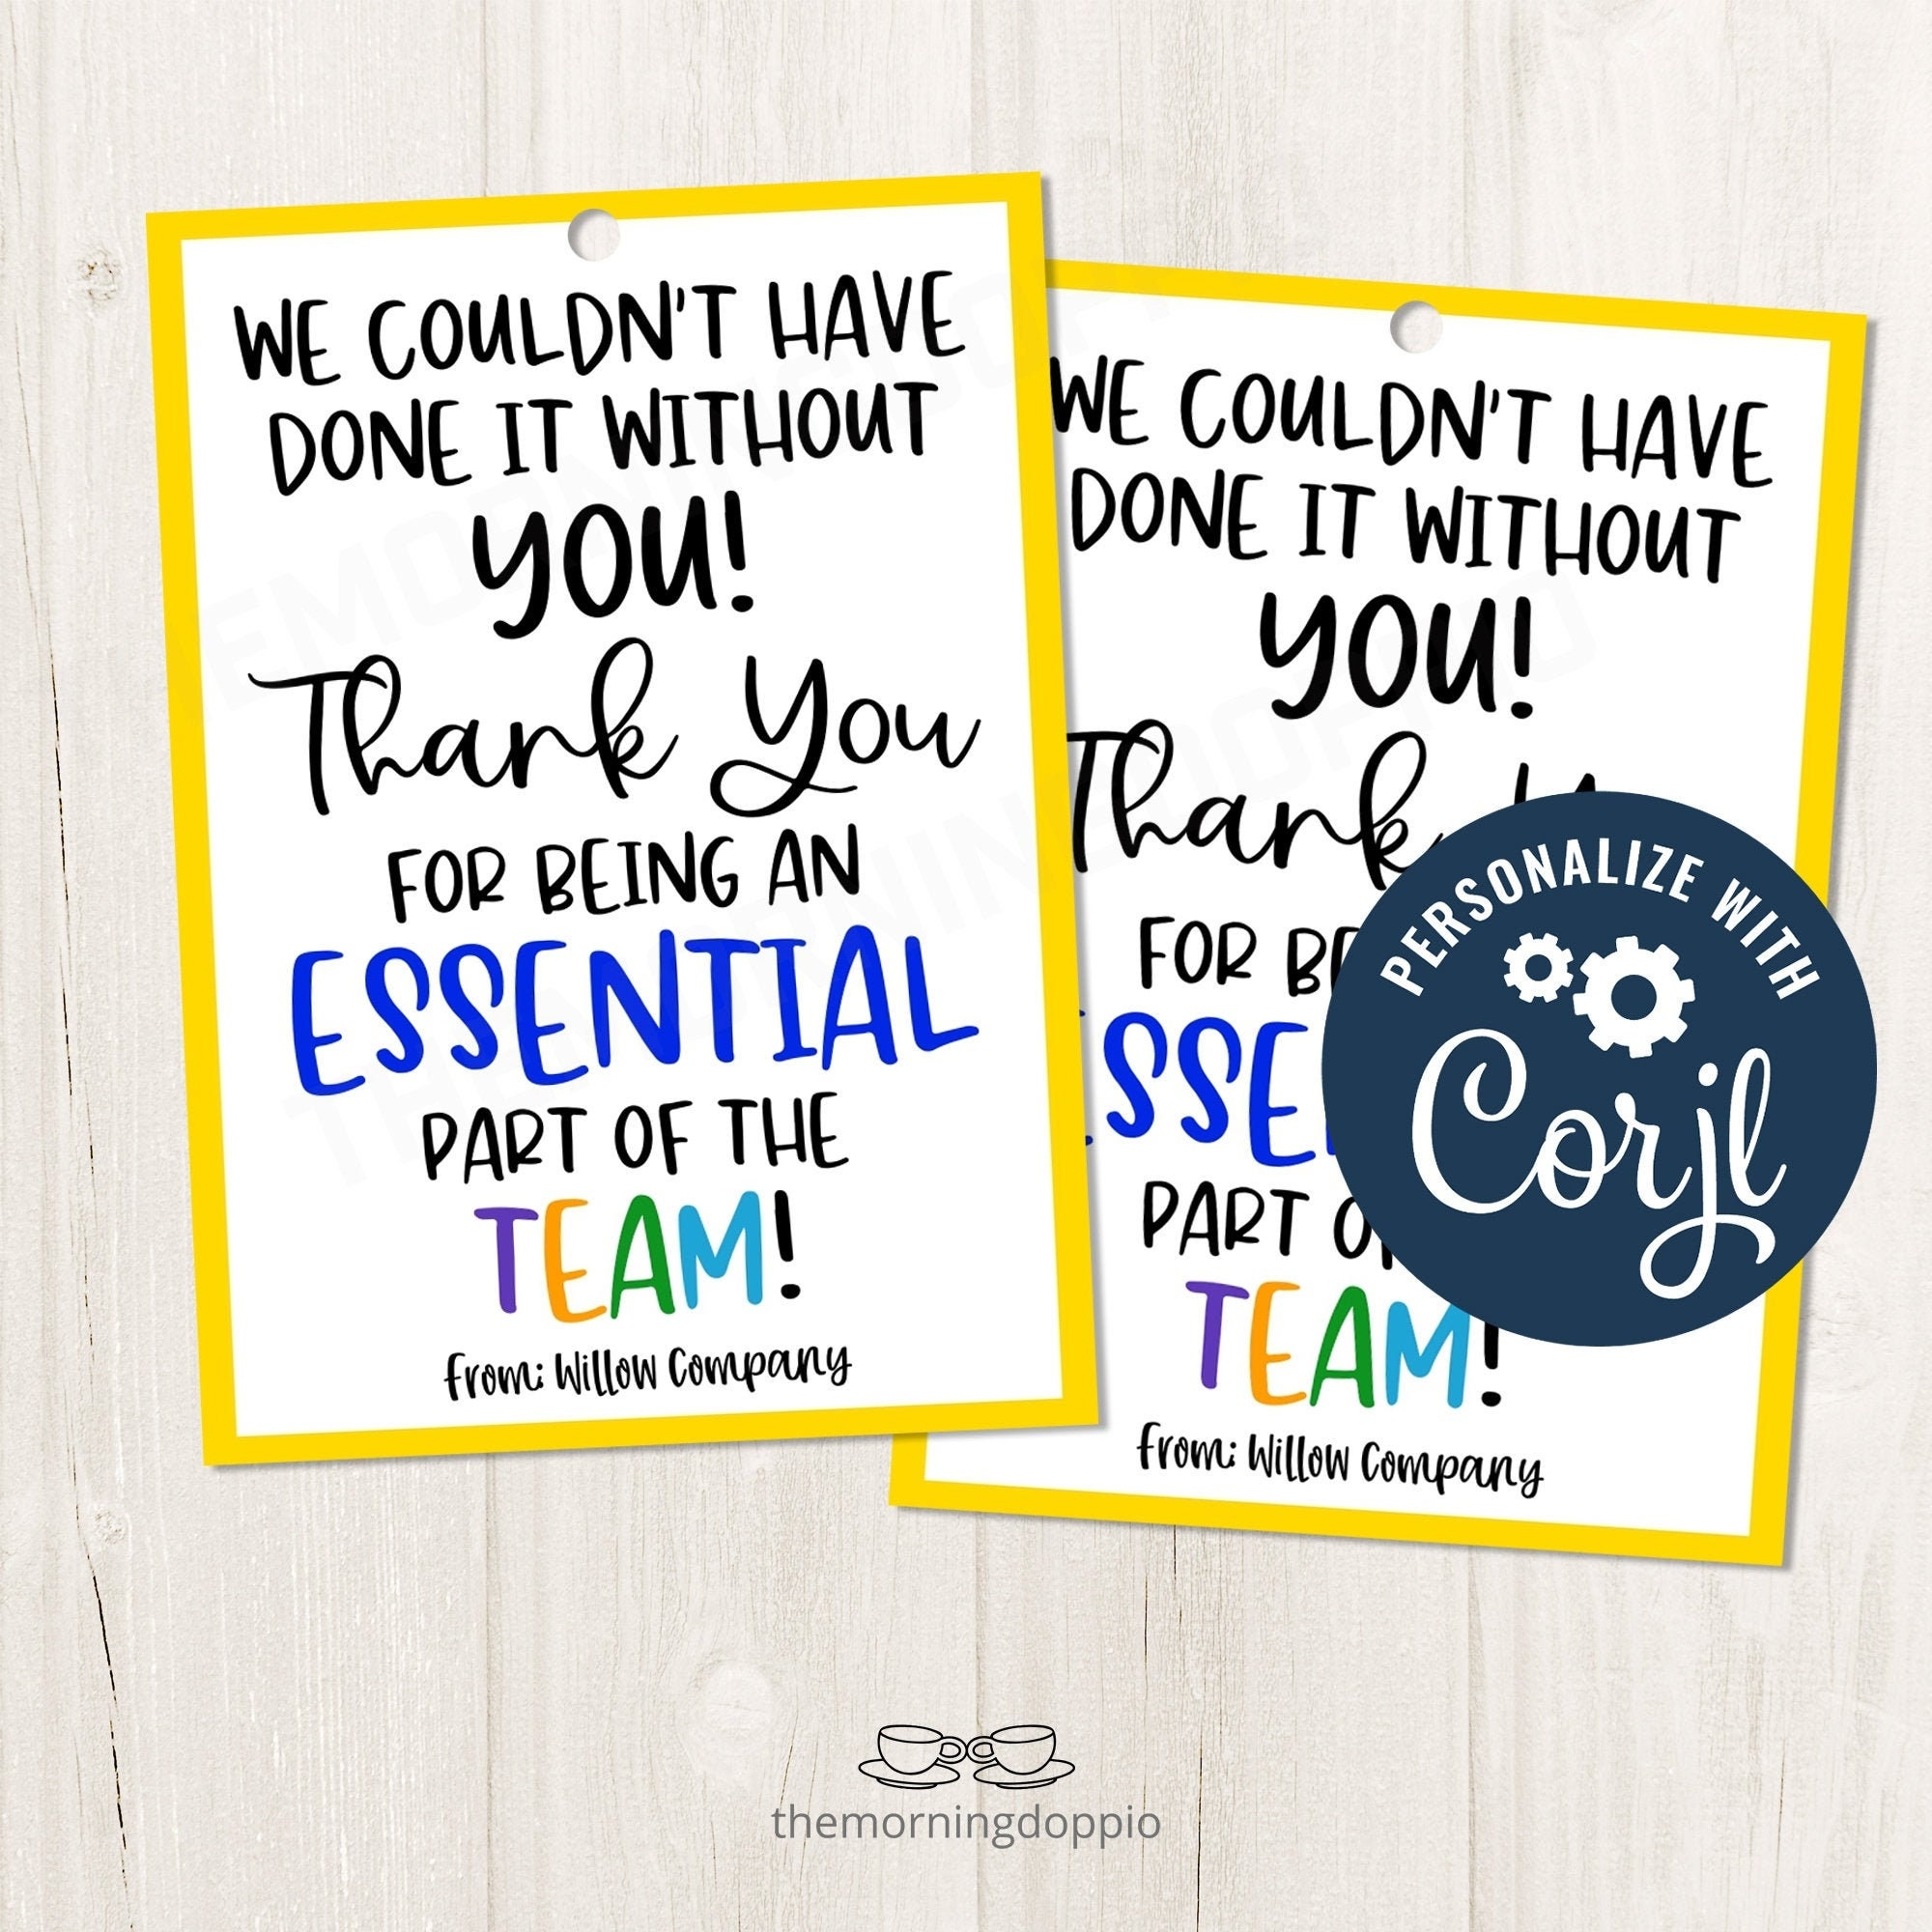 WE COULDN'T HAVE
DONE IT WITHOUT
YOU!
Thank You
FOR BEING AN
ESSENTIAL
PART OF THE
TEAM!
From: Willow Company
WE COULDN'T HAVE
DONE IT WITHOUT
YOU!
Thank
FOR BE
SSE
PART O
TEAM!
From: Willow Company
PERSONALIZE WITH
Corjl
themorningdoppio